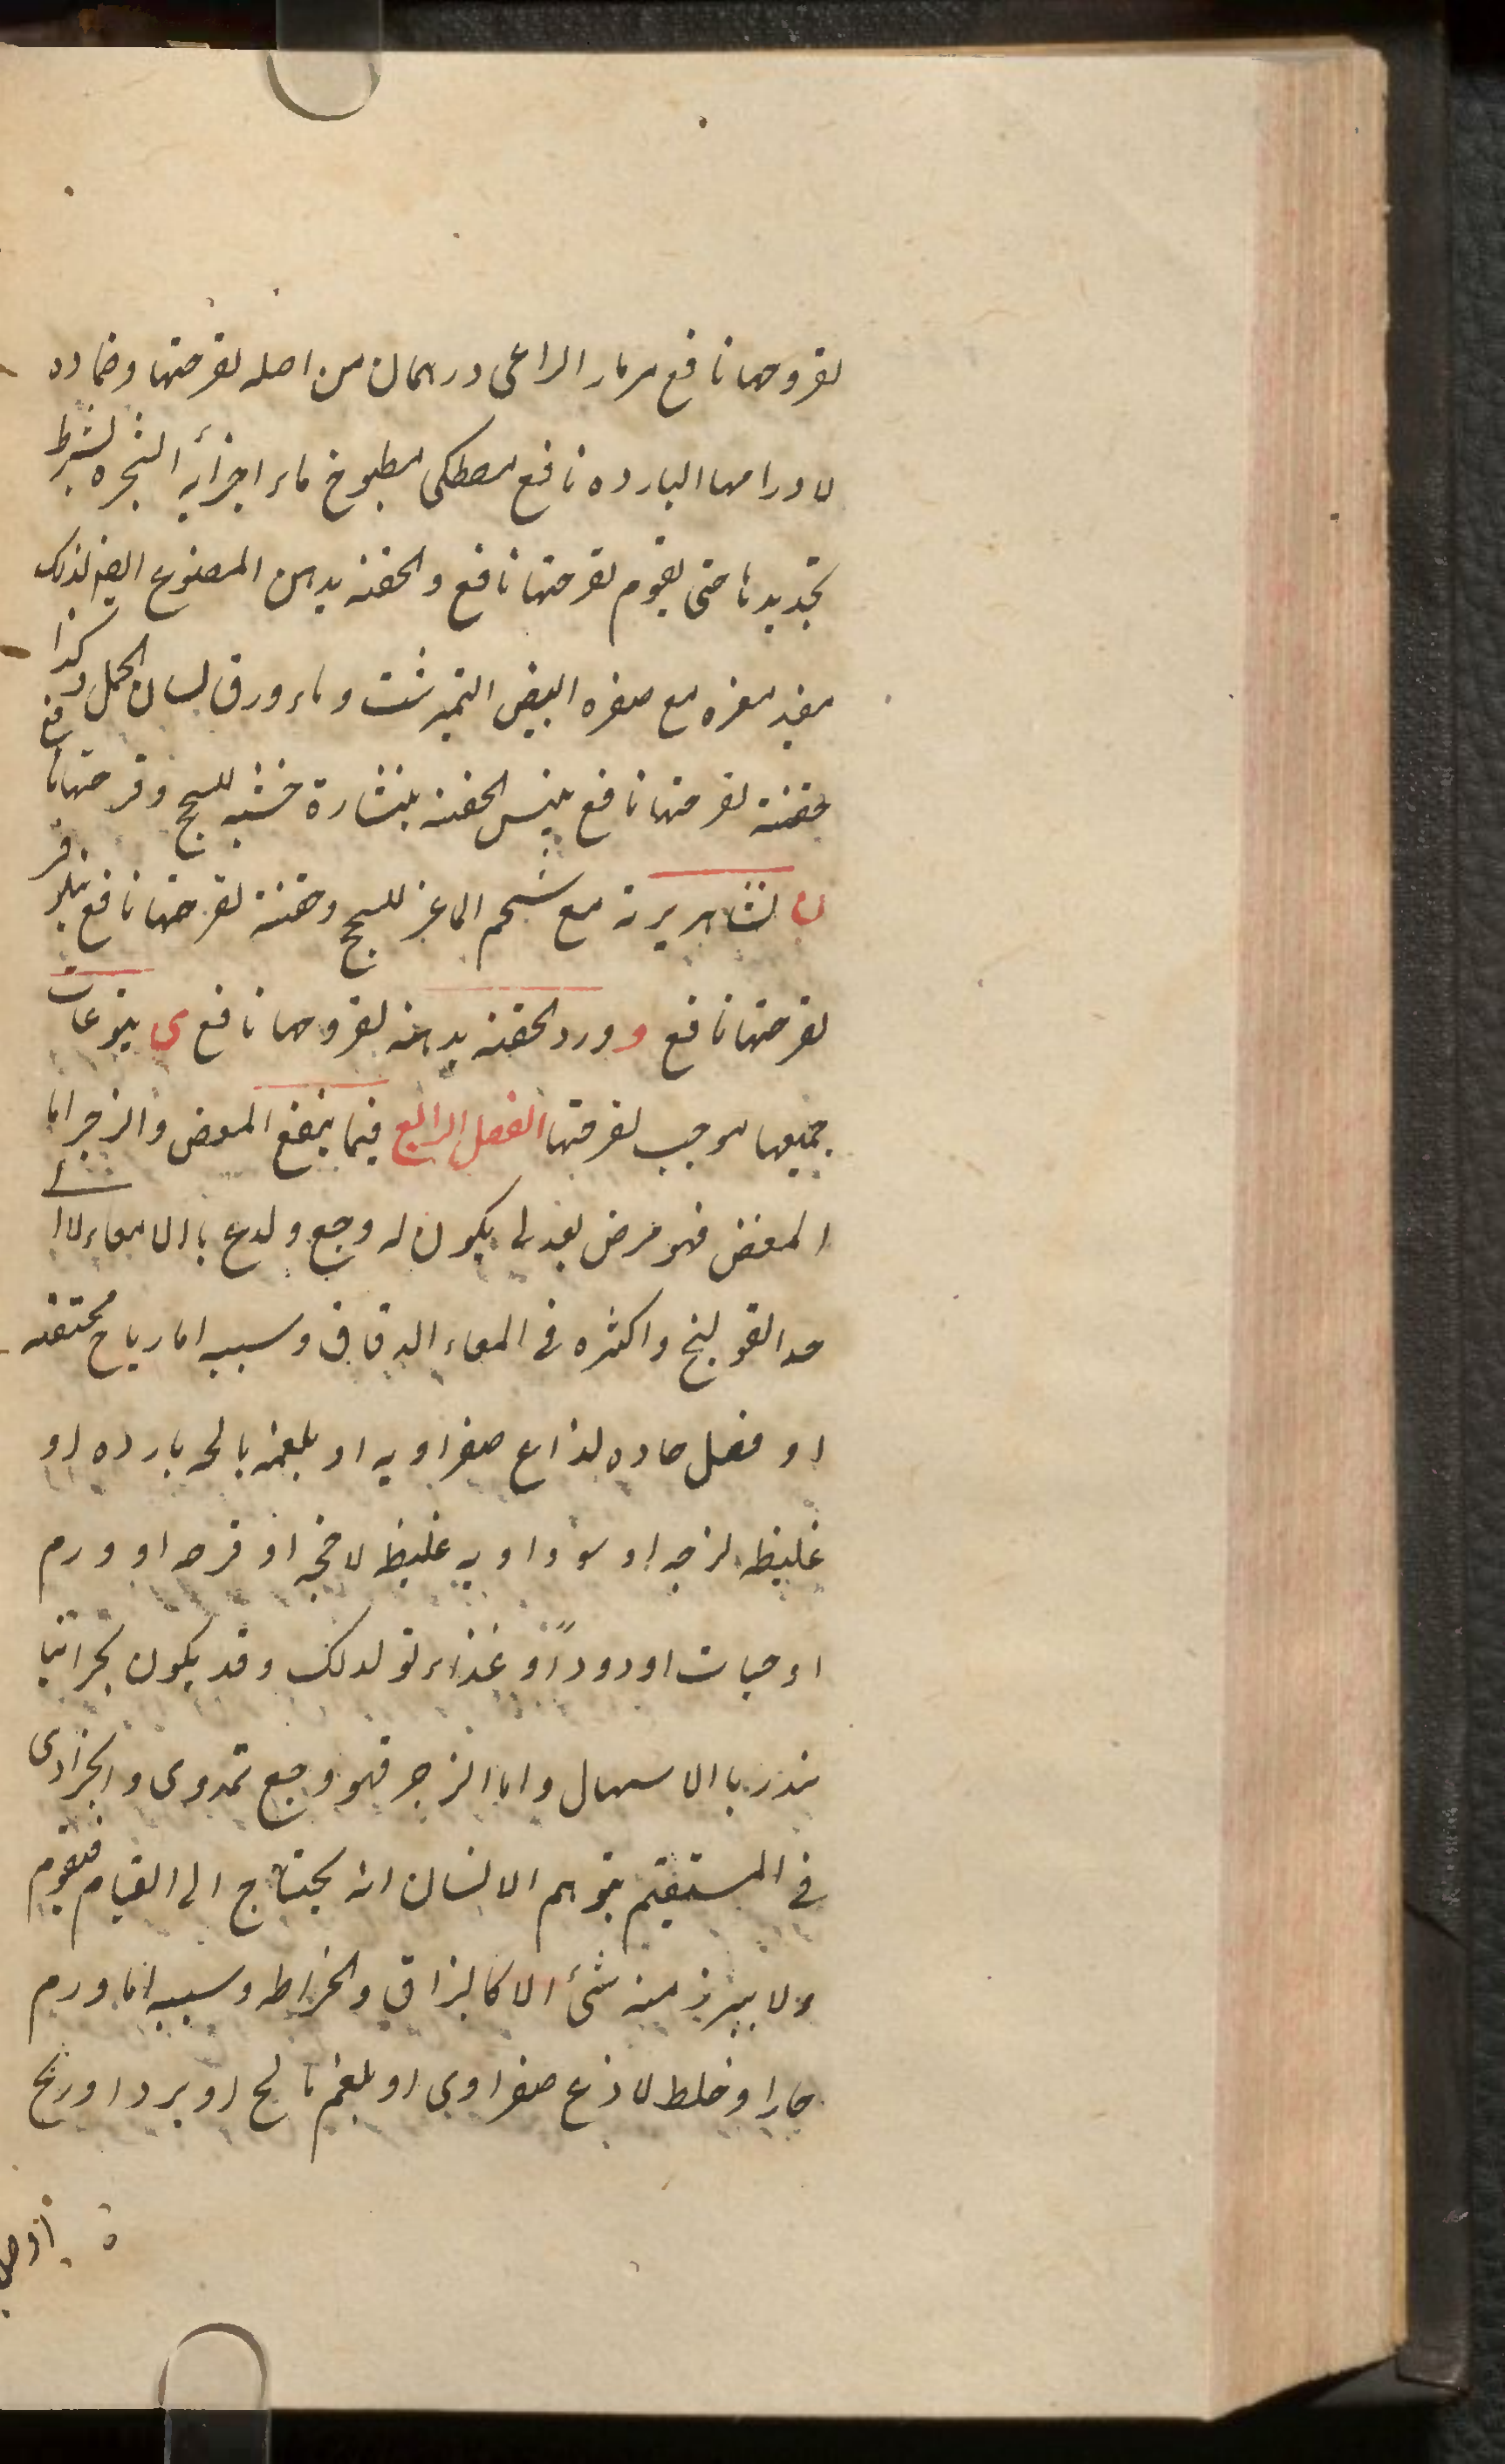 لقروحها نافع مزمار الراعى درهمان من اصله لقرحتها وضماده
لاورامها البارده نافع مصطكى مطبوخ ماء اجزائه الشجره لشرط
تجديدها حتى يقوم لقرحتها نافع والحقنه بدهن المصنوع ايضا لذلك
مفيد مغره مع صفره البيض النيمرشت وماء ورق لسان الحمل وكذا
حقنة لقرحتها نافع ميس الحقنه بنشارة خشبه للسحج وقرحتها نافع
ن نشا هريرته مع شحم الماعز للسحج وحقنة لقرحتها نافع نيلوفر
لقرحتها نافع و ورد الحقنه بدهنه لقروحها نافع ى يتوعات
جميعها موجب لقرحتها الفصل الرابع فيما ينفع المغص والزحير اما
المغص فهو مرض يكون له وجع ولدع باالامعاء لا
حد القولنج واكثره فى المعاء الدقاق وسببه اما رياح محتقنه
او فضل حاده لذاع صفراويه او بلغميه مالحه بارده او
غليظه لزجه او سوداويه غليظ لاحجه او قرحه او ورم
او حيات او دود او غذاء تولد ذلك وقد يكون بحرانيا
ينذر باالاسهال واما الزحير فهو وجع تمددى وانجرادى
فى المستقيم يتوهم الانسان انه يحتاج الى القيام فيقوم
ولا يبرز منه شئ الا كالبزاق والخراطه وسببه اما ورم
حار او خلط لاذع صفراوى او بلغم مالح او برد او ريح